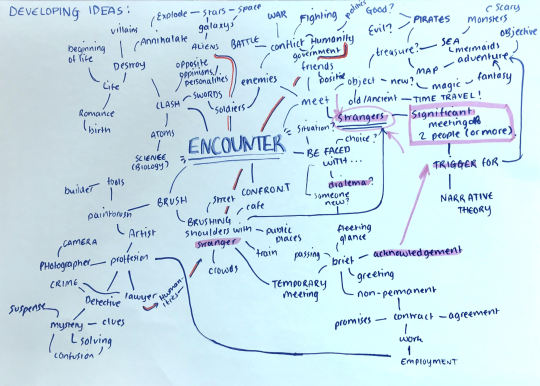 DEVELOPING IDEAS:
Explode
stars
space
galaxys
ALIENS
villains
Annihalate
Destroy
beginning
of life
Life
Romance
birth
BATTLE
WAR
Fighting
politics
conflict
Humanity
government
friends
positie
enemies
opposite
oppinions/
personalities
SWORDS
soldiers
CLASH
ATOMS
SCIENCE
(Biology)
Good?
Evil?
PIRATES
treasure?
SEA
scary
monsters
mermaids
objective
adventure
MAP
magic
fantasy
object
new?
old/Ancient
TIME TRAVEL!
meet
Strangers
significant
meeting of
2 people (or more).
TRIGGER FOR
NARRATIVE
THEORY
ENCOUNTER
situation?
choice?
BE FACED
WITH...
dialema?
someone
new?
CONFRONT
street
cafe
BRUSH
BRUSHING
shoulders with
stranger
public
places
train
CROWDS
TEMPORARY
MEETING
fleeting
glance
passing
brief
acknowledgement
greeting
non-permanent
promises
contract
agreement
work
EMPLOYMENT
builder
tools
paintbrush
Artist
CAMERA
Photographer
proffesion
CRIME
Detective
lawyer
Human
ities
suspense
mystery
clues
solving
confusion